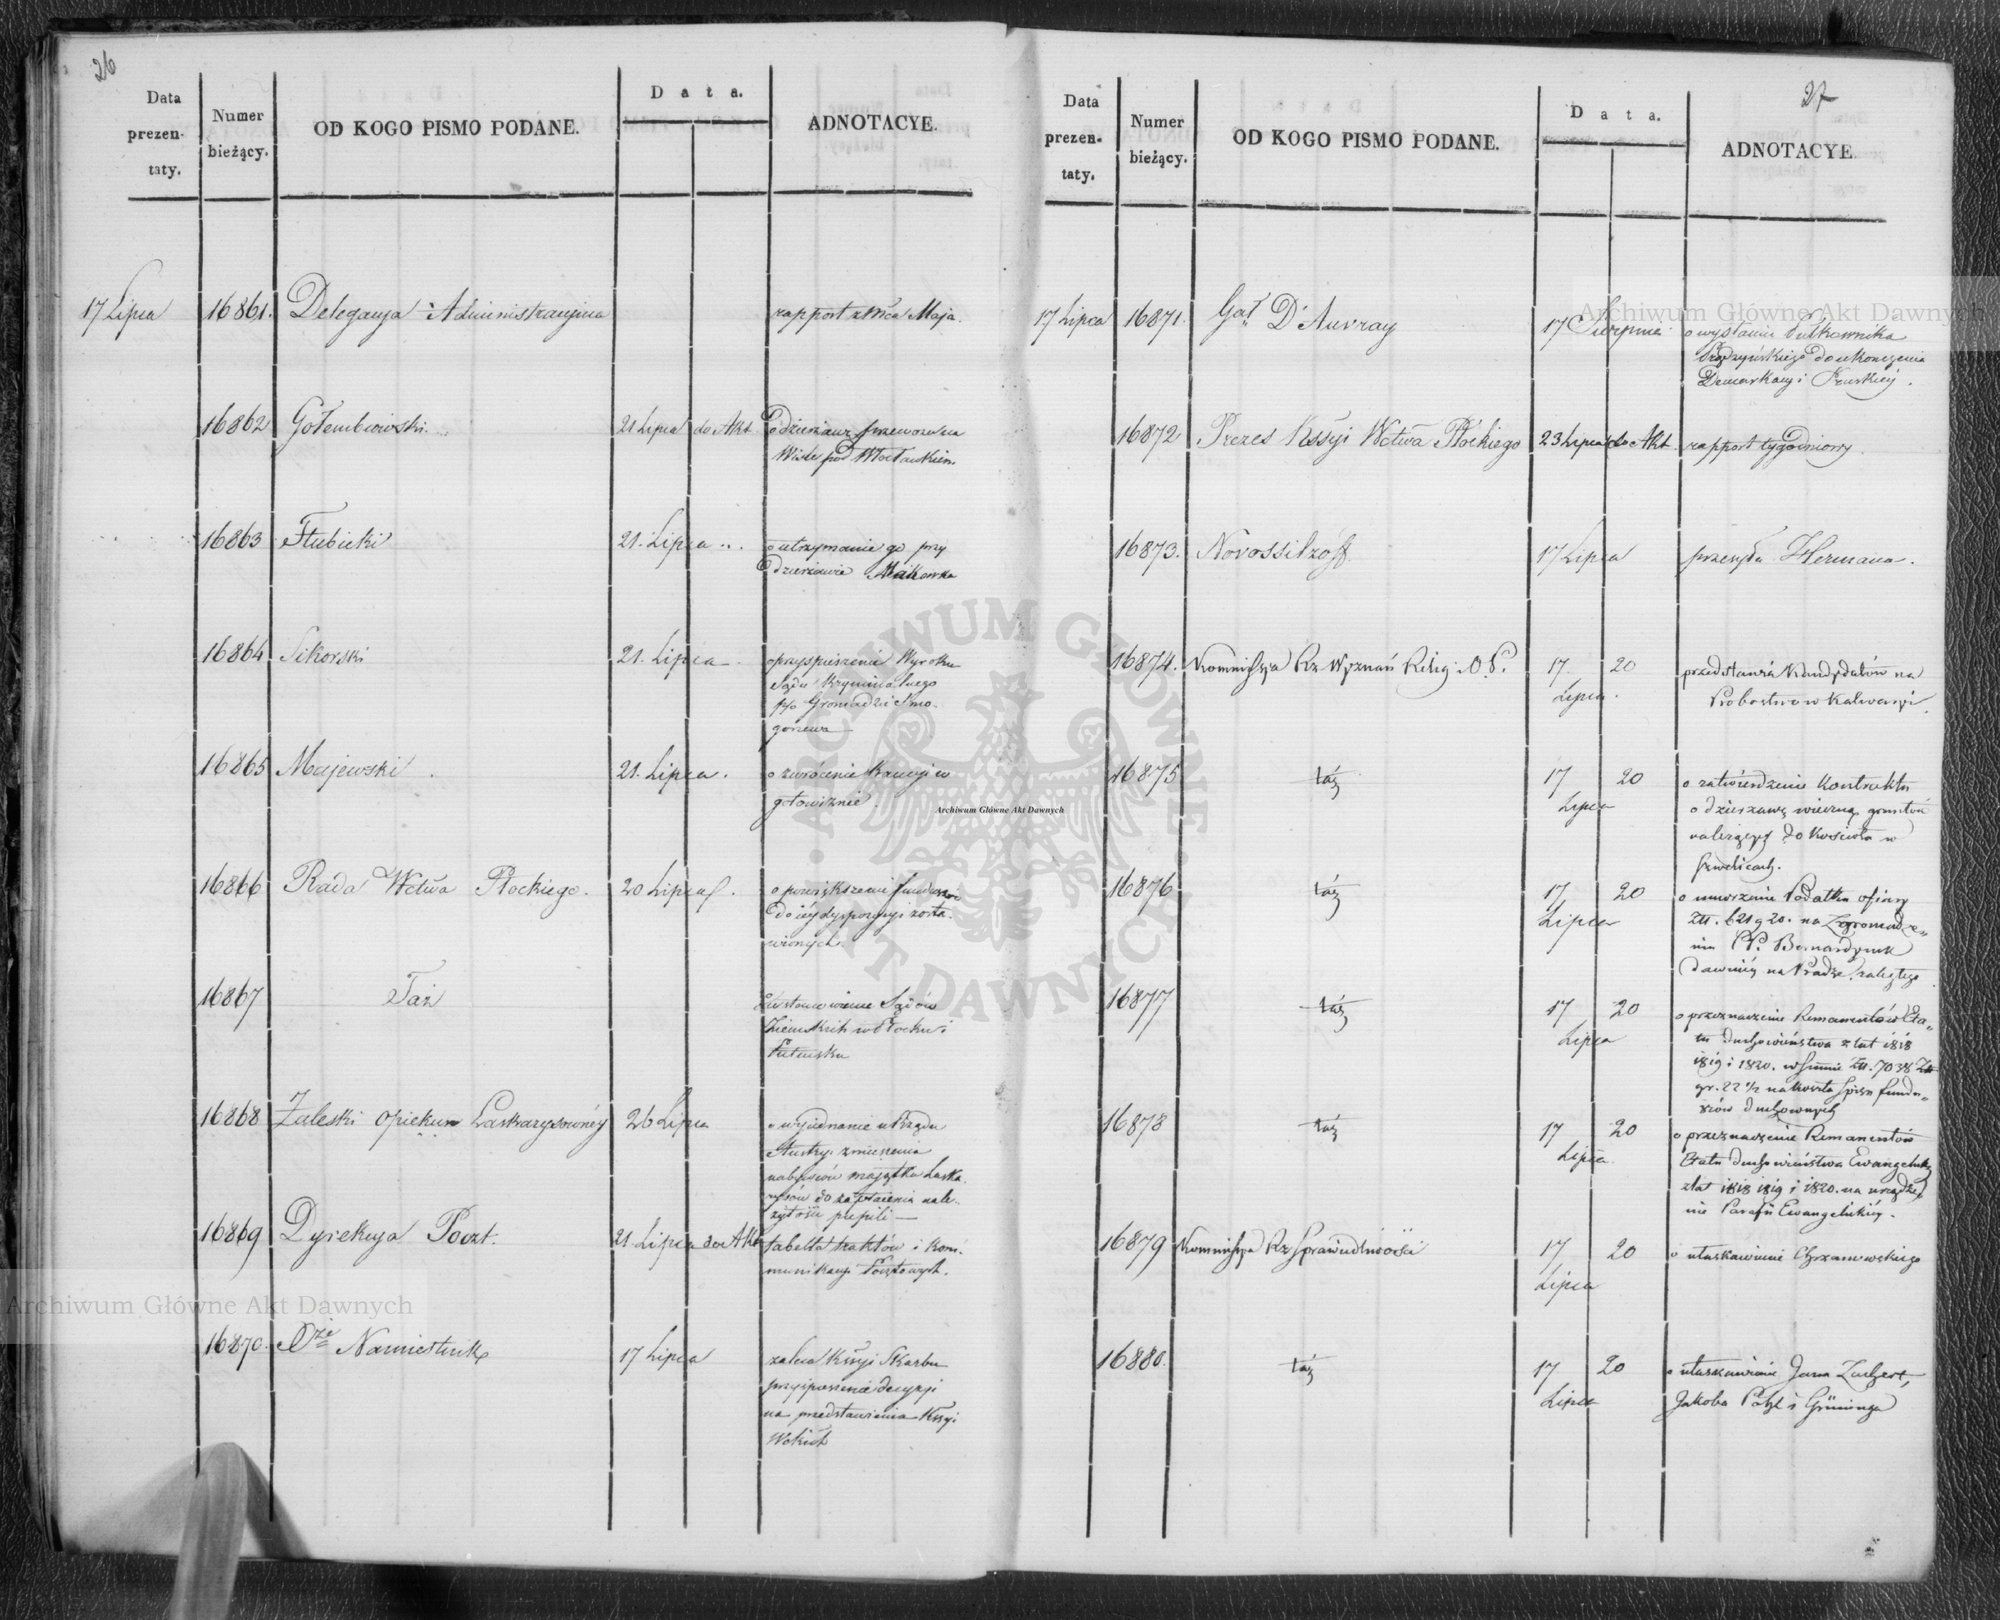 26
Data prezentaty.
Numer bieżący.
OD KOGO PISMO PODANE.
Data.
ADNOTACYE.
17 Lipca 16861. Delegacya Administracyina
rapport z M<sup>ca</sup> Maja.
16862 Gołembiowski 21 Lipca do Akt
o dzierżawę przewozu na
Wiśle pod Włocławkiem
16863 Słubicki 21. Lipca
o utrzymanie go przy
dzierżawie
16864 Sikorski 21. Lipca
o przyspieszenie Wyroku
Sądu Kryminalnego
16865 Majewski 21. Lipca.
o zwrócenie Kaucyi w
gotowiznie.
16866 Rada Wctwa Płockiego. 20 Lipca
o powiększenie funduszów
do iéy dyspozycyi zosta-
wionych.
16867 Taż
Ustanowienie Sądów
Ziemskich w Płocku i
Pułtusku
16868 Zaleski opiekun Laskarysowéy 26 Lipca
o wyjednanie u Rządu
Austry: zmuszenia
nabywców majątku Laska-
rysów do zapłacenia nale-
żytości
16869 Dyrekcya Poczt. 21 Lipca do Akt
tabella traktów i kom-
munikacyi Pocztowych.
16870. Xże Namiestnik 17 Lipca
zaleca Kssyi Skarbu
przyspieszenie decyzyi
na przedstawienia Kssyi
Wckich
27
Data prezentaty.
Numer bieżący.
OD KOGO PISMO PODANE.
Data.
ADNOTACYE
17 Lipca 16871. Gał D'Auvray 17 Sierpnia
o wysłanie Pułkownika
Prądzyńskiego do ukończenia
Demarkacyi Pruskiéy.
16872 Prezes Kssyi Wctwa Płockiego 23 Lipca do Akt
rapport tygodniowy.
16873. Novossilzoff 17 Lipca
przesyła Hermana.
16874. Kommissya Rz Wyznań Relig: O. P. 17 Lipca. 20
przedstawia Kandydatów na
Probostwo w Kalwaryi.
16875 táż 17 Lipca 20
o zatwierdzenie Kontraktu
o dzierżawę wieczną gruntów
należących do Kościoła w
16876 táż 17 Lipca 20
o umorzenie Podatku ofiary
Złł. 621 g 20. na Zgromadze-
niu PP. Bernardynek
dawniéy na Pradze, zaległego
16877 táż 17 Lipca 20
o przeznaczenie Remanentów Eta-
tu duchowieństwa z lat 1818
1819 i 1820. w summie Złł. 7038
gr. 22 1/2 na koszta Spisu fundu-
szów duchownych
16878 táż 17 Lipca 20
o przeznaczenie Remanentów
Etatu duchowieństwa Ewangelick:
z lat 1818 1819 i 1820. na urządze-
nie Parafii Ewangelickiey.
16879 Kommissya Rz Sprawiedliwości 17 Lipca 20
o ułaskawienie Chrzanowskiego
16880. táż 17 Lipca 20
o ułaskawienie Jana Zuchert,
Jakoba
Archiwum Główne Akt Dawnych
Archiwum Główne Akt Dawnych
Archiwum Główne Akt Dawnych
ARCHIWUM GŁÓWNE AKT DAWNYCH